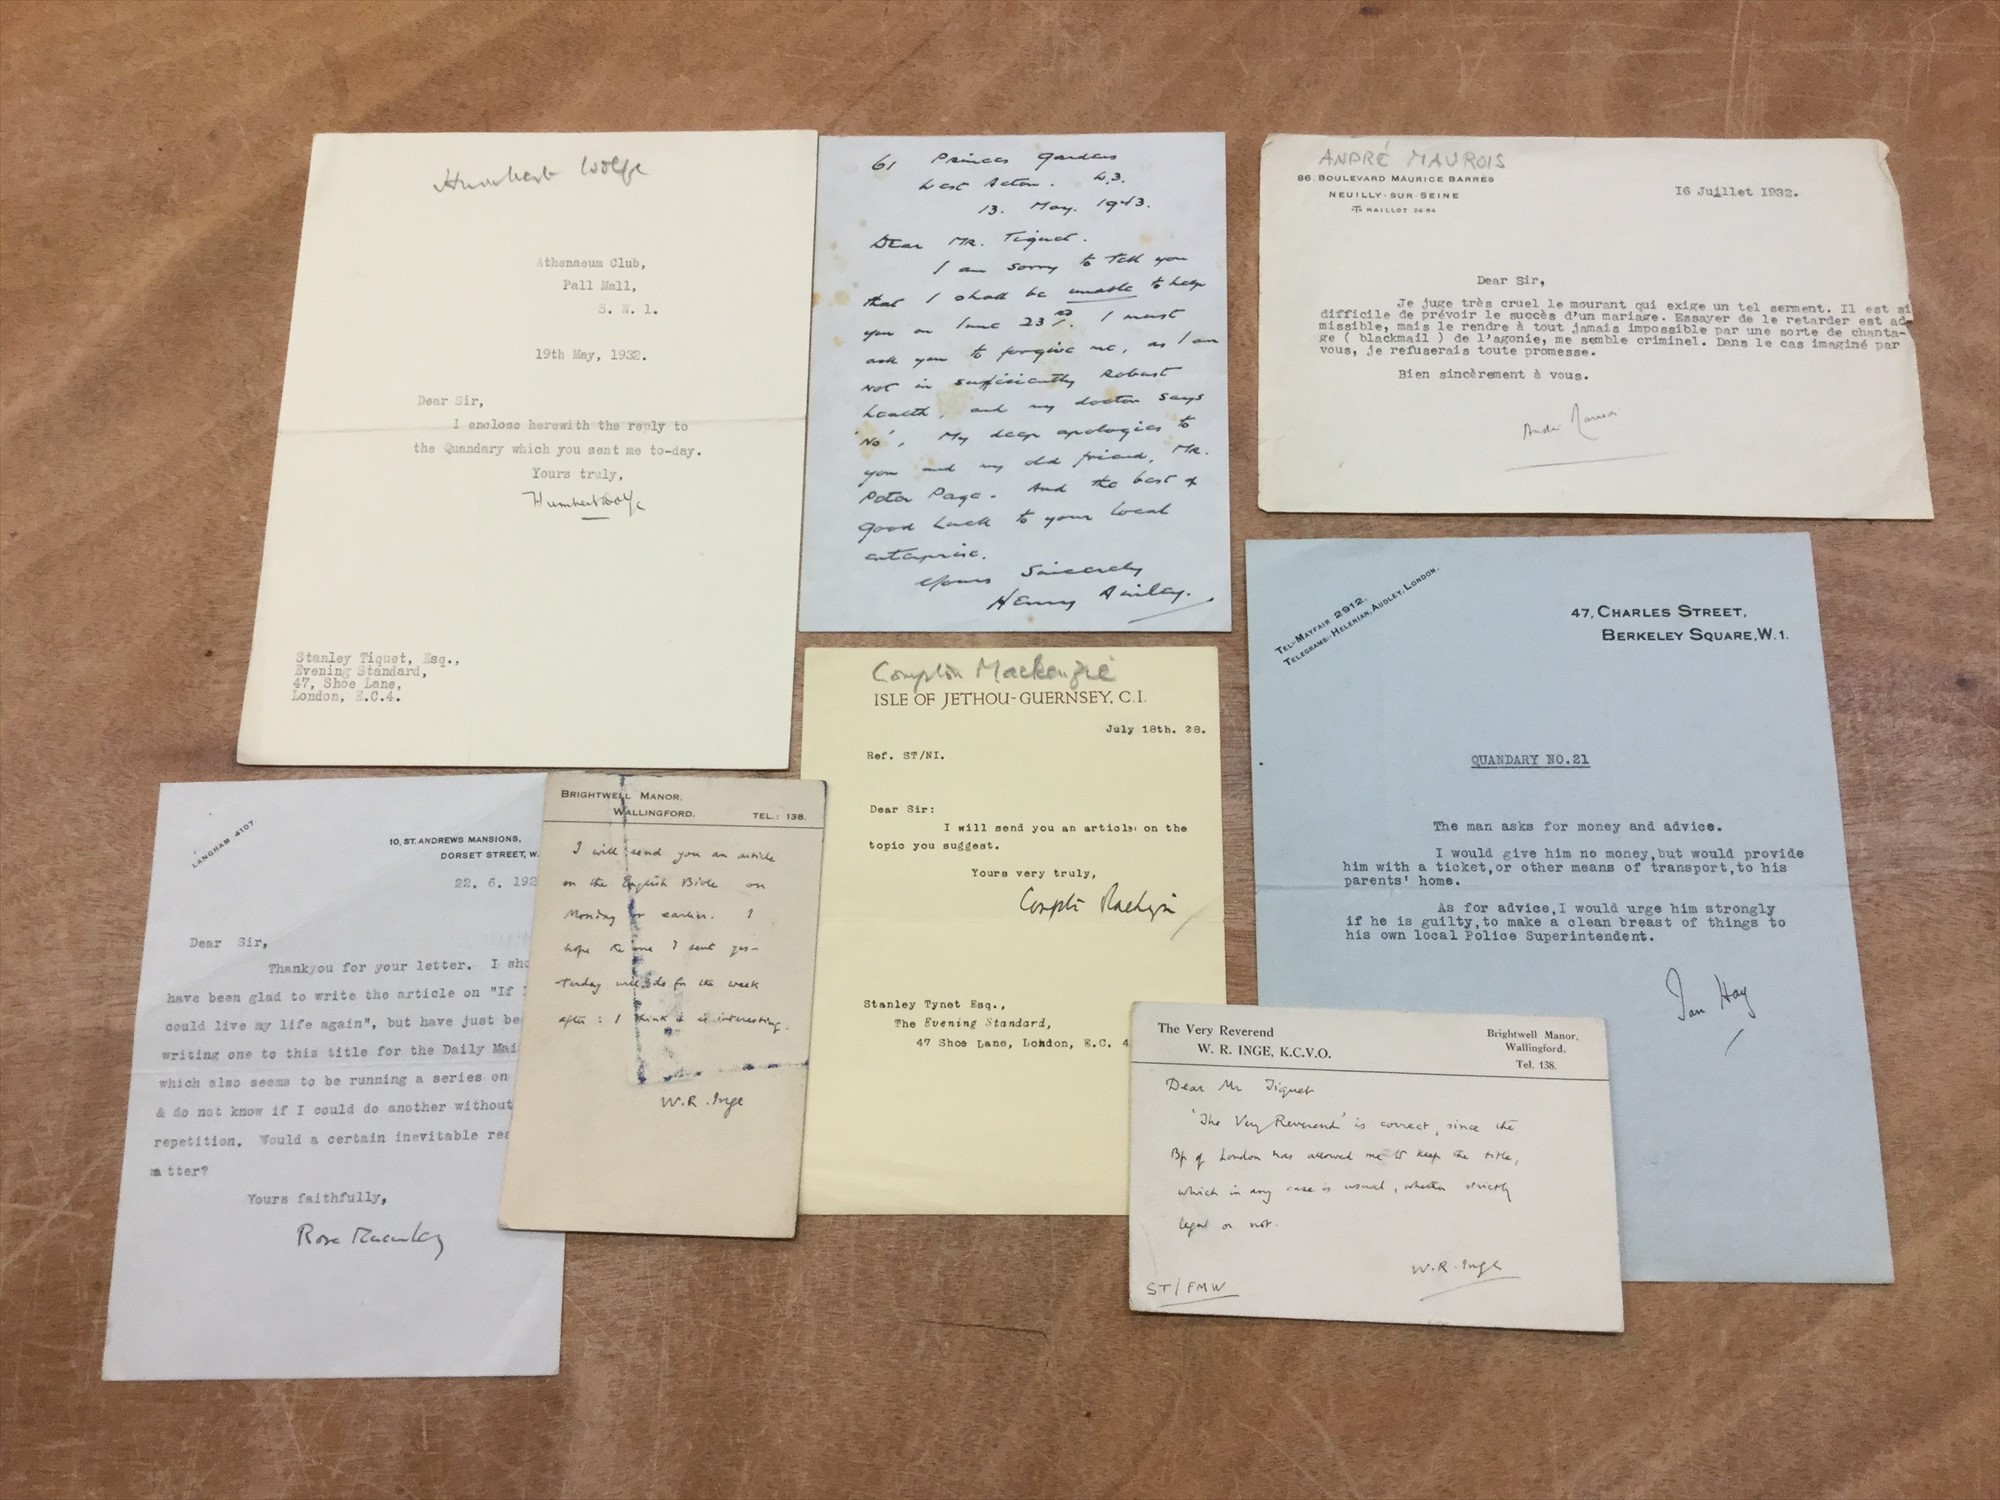 Humbert Wolfe
Athenaeum Club,
Pall Mall,
S. W. 1.
19th May, 1932.
Dear Sir,
I enclose herewith the reply to
the Quandary which you sent me to-day.
Yours truly,
Humbert Wolfe
Stanley Tiquet, Esq.,
Evening Standard,
47, Shoe Lane,
London, E.C.4.
61 Princes Gardens
West Acton. W.3.
13. May. 1943.
Dear Mr. Tiquet.
I am sorry to tell you
that I shall be unable to help
you on June 23rd. I must
ask you to forgive me, as I am
not in sufficiently robust
health, and my doctor says
'No'. My deep apologies to
you and my old friend, Mr.
Peter Page. And the best of
good luck to your local
enterprise.
Yours Sincerely
Henry Ainley.
ANDRÉ MAUROIS
86, BOULEVARD MAURICE BARRÈS
NEUILLY-SUR-SEINE
MAILLOT 24-84
16 Juillet 1932.
Dear Sir,
Je juge très cruel le mourant qui exige un tel serment. Il est si
difficile de prévoir le succès d'un mariage. Essayer de le retarder est ad-
missible, mais le rendre à tout jamais impossible par une sorte de chanta-
ge ( blackmail ) de l'agonie, me semble criminel. Dans le cas imaginé par
vous, je refuserais toute promesse.
Bien sincèrement à vous.
André Maurois
TEL. MAYFAIR 2912.
TELEGRAMS:- HELENIAN, AUDLEY, LONDON.
47, CHARLES STREET,
BERKELEY SQUARE, W.1.
QUANDARY NO.21
The man asks for money and advice.
I would give him no money,but would provide
him with a ticket,or other means of transport,to his
parents' home.
As for advice,I would urge him strongly
if he is guilty,to make a clean breast of things to
his own local Police Superintendent.
Ian Hay
Compton Mackenzie
ISLE OF JETHOU-GUERNSEY, C.I.
July 18th. 28.
Ref. ST/NI.
Dear Sir:
I will send you an article on the
topic you suggest.
Yours very truly,
Compton Mackenzie
Stanley Tynet Esq.,
The Evening Standard,
47 Shoe Lane, London, E.C. 4
LANGHAM 4107.
10, ST. ANDREWS MANSIONS,
DORSET STREET, W.
22. 6. 192
Dear Sir,
Thankyou for your letter. I sho
have been glad to write the article on "If I
could live my life again", but have just be
writing one to this title for the Daily Mai
which also seems to be running a series on
& do not know if I could do another without
repetition. Would a certain inevitable res
matter?
Yours faithfully,
Rose Macaulay
BRIGHTWELL MANOR,
WALLINGFORD.
TEL.: 138.
I will send you an article
on the English Bible on
Monday or earlier. I
hope the one I sent yes-
terday will do for the week
after: I think it is interesting.
W.R. Inge
The Very Reverend
W. R. INGE, K.C.V.O.
Brightwell Manor,
Wallingford.
Tel. 138.
Dear Mr Tiquet
'The Very Reverend' is correct, since the
Bp of London has allowed me to keep the title,
which in any case is usual, whether strictly
legal or not.
W.R. Inge
ST/FMW